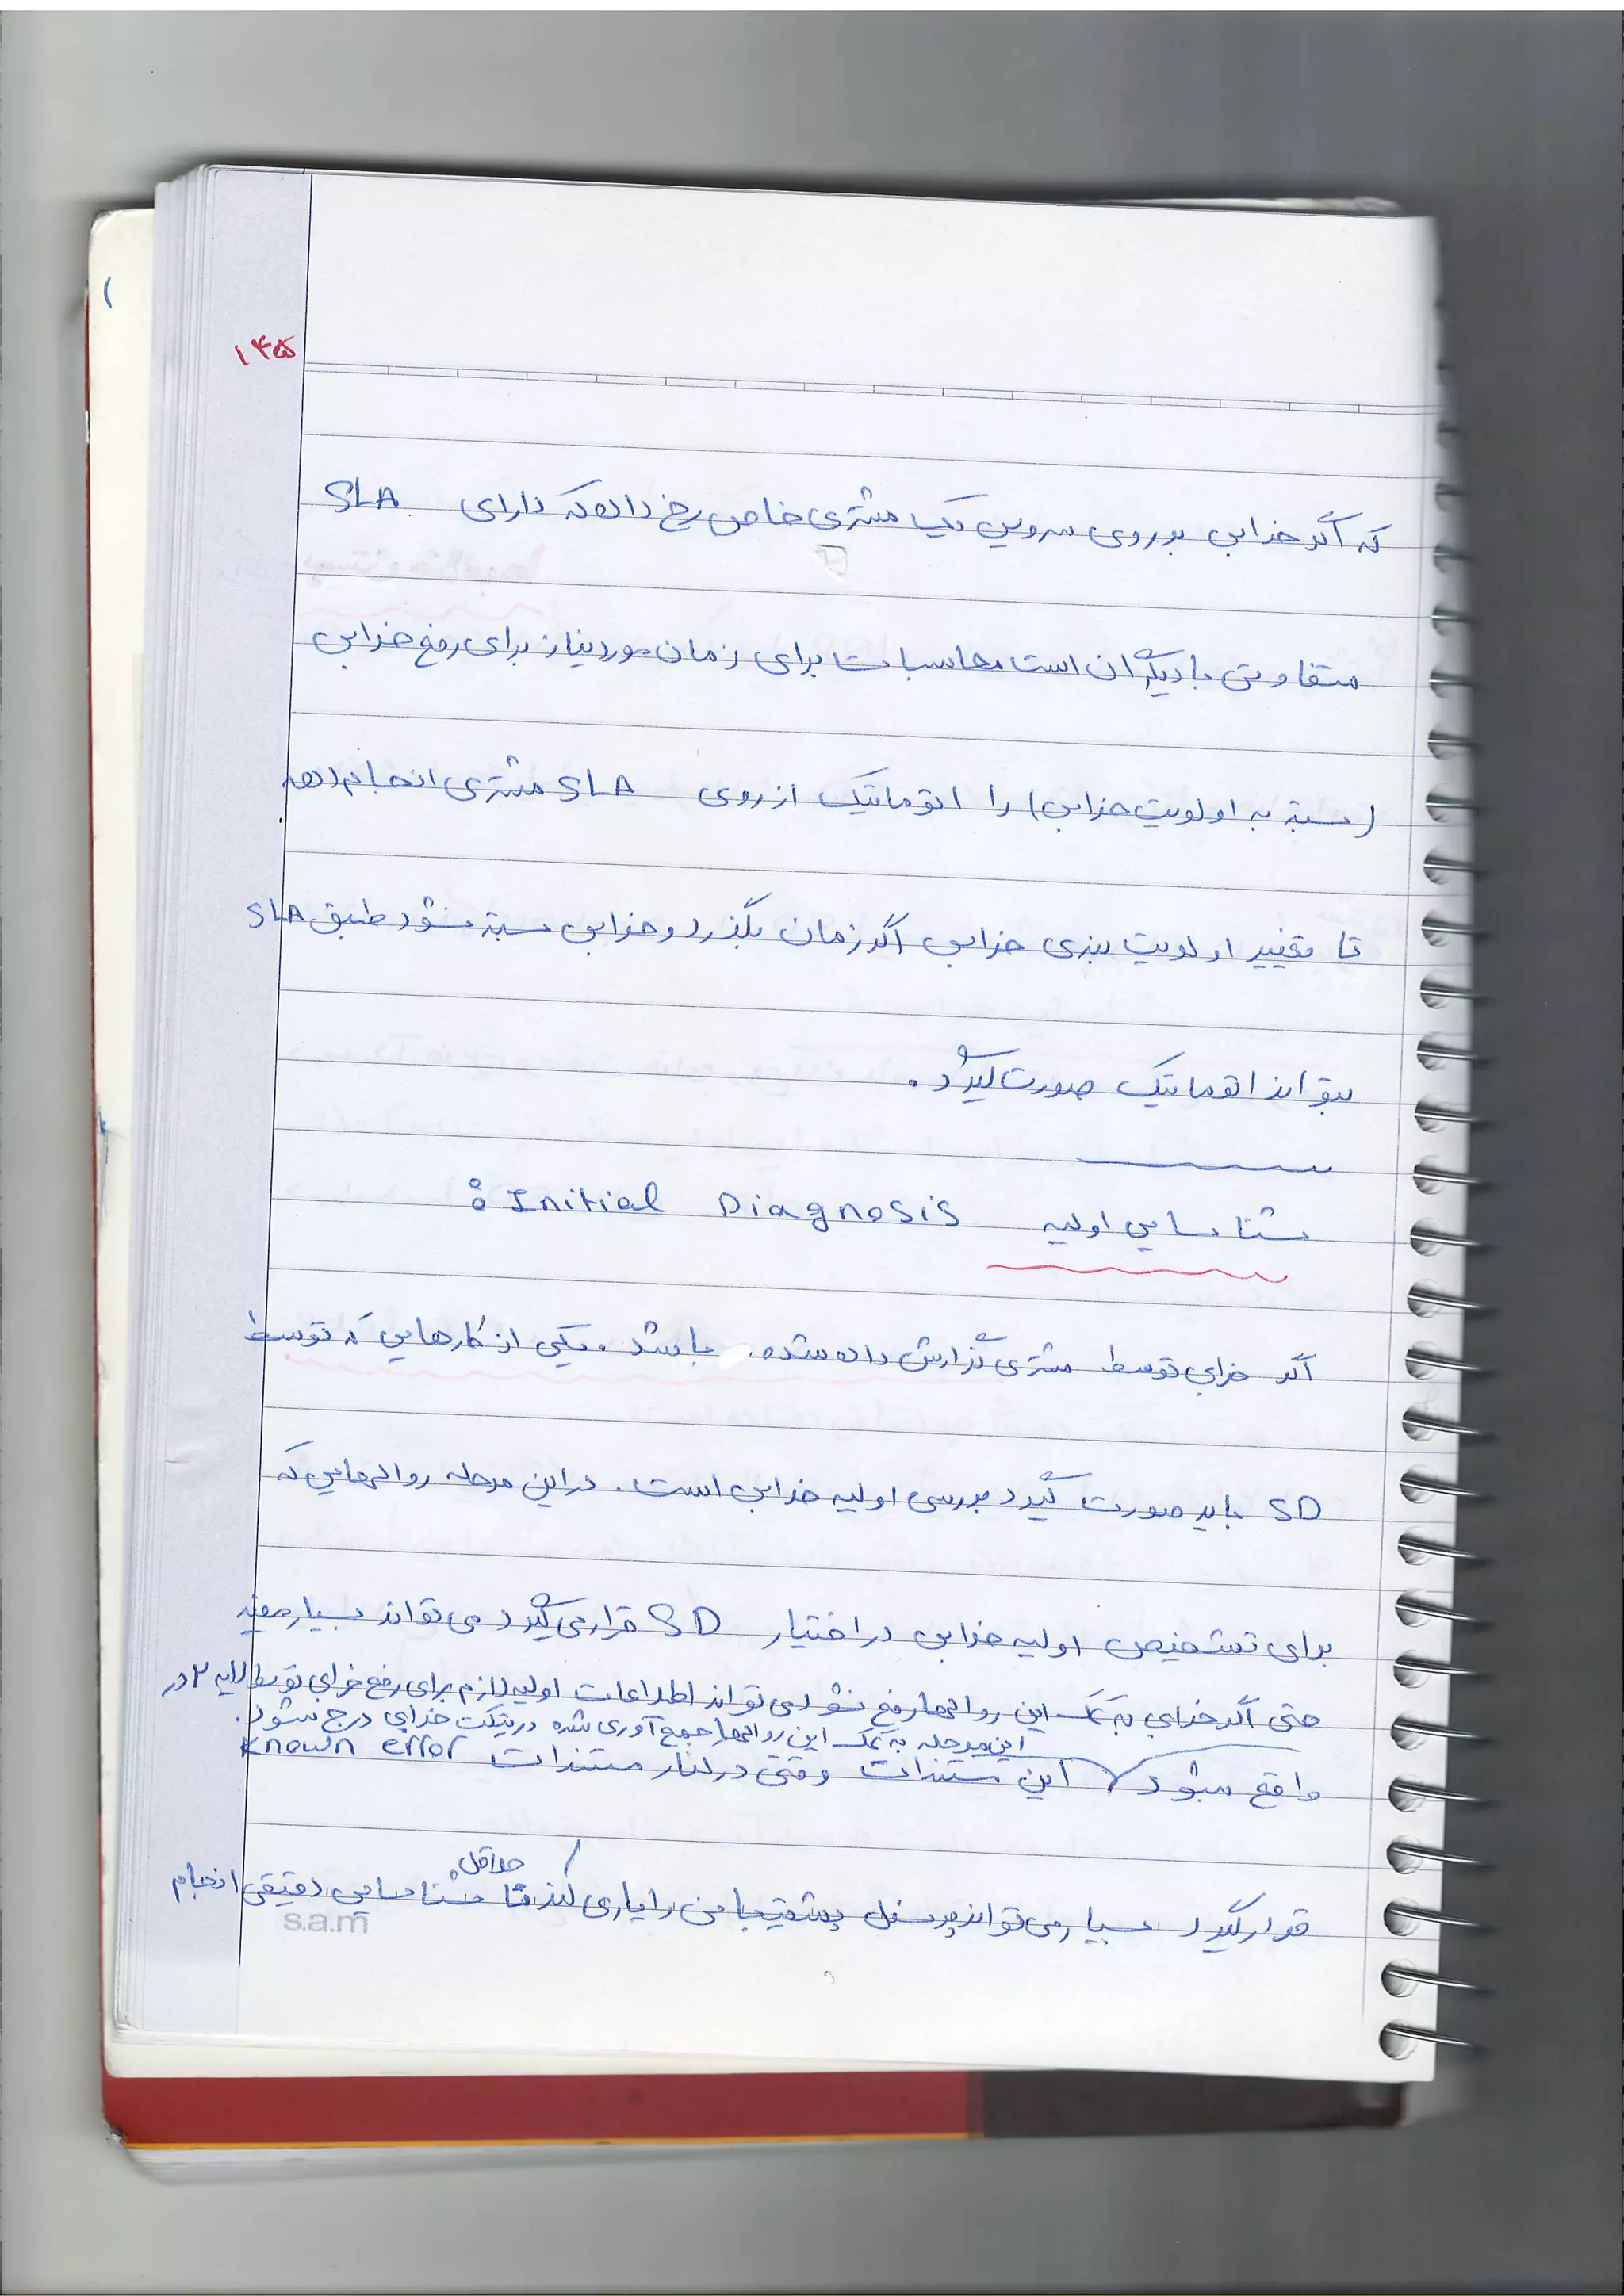 ۱۴۵
که اگر خرابی بر روی سرویس یک مشتری خاص رخ داده که دارای SLA
متفاوتی با دیگران است محاسبات برای زمان مورد نیاز برای رفع خرابی
(بسته به اولویت خرابی) را اتوماتیک از روی SLA مشتری انجام دهد
تا تغییر اولویت بندی خرابی اگر زمان بگذرد و خرابی بسته نشود طبق SLA
بتواند اتوماتیک صورت گیرد.
شناسایی اولیه Initial Diagnosis :
اگر خرابی توسط مشتری گزارش داده شده باشد، یکی از کارهایی که توسط
SD باید صورت گیرد بررسی اولیه خرابی است. در این مرحله روالهایی که
برای تشخیص اولیه خرابی در اختیار SD قرار می گیرد می تواند بسیار مفید
واقع شود
حتی اگر خرابی به کمک این روالها رفع نشود می تواند اطلاعات اولیه لازم برای رفع خرابی توسط لایه ۲ در
این مرحله به کمک این روالها جمع آوری شده در تیکت خرابی درج شود.
این مستندات وقتی در کنار مستندات known error
قرار گیرد بسیار می تواند پرسنل پشتیبانی را یاری کند تا حداقل شناسایی دقیقی انجام
s.a.m